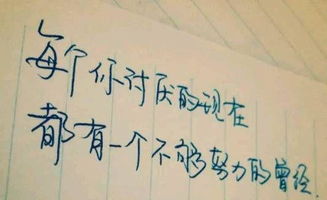 每个你讨厌的现在
都有一个不够努力的曾经.